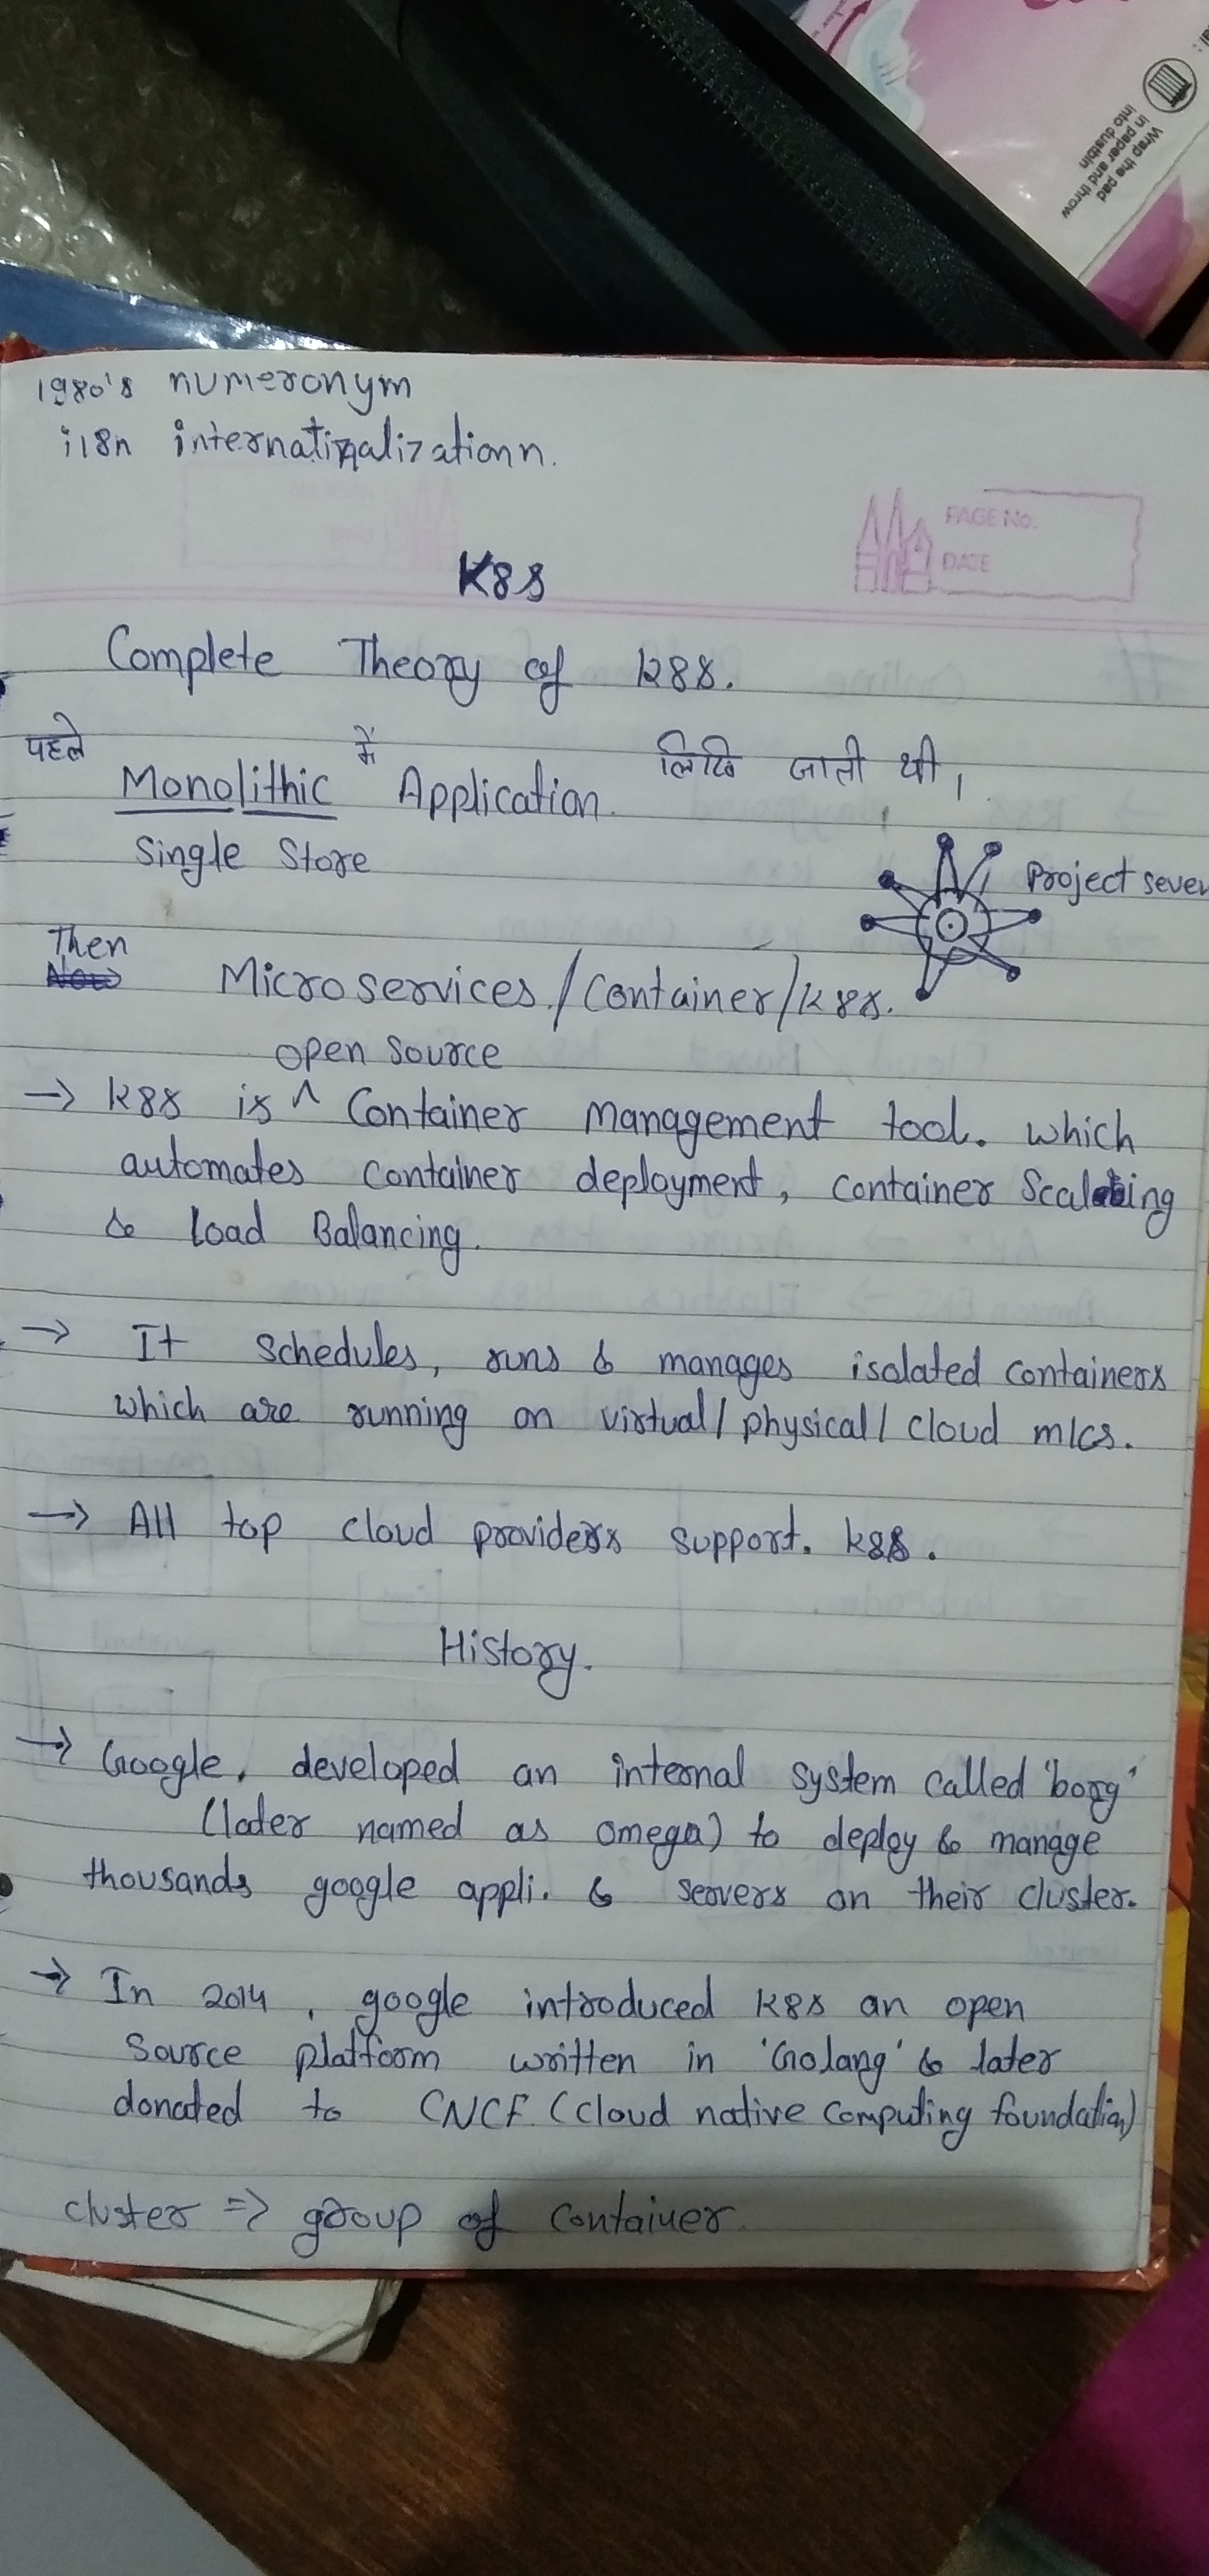 Wrap the pad
in paper and throw
into dustbin
1980's numeronym
i18n internationalizationn.
PAGE No.
DATE
K8s
Complete Theory of k8s.
पहले में लिखि जाती थी।
Monolithic Application.
Single Store
Project seven
Then
Microservices/Container/k8s.
open source
→ k8s is ^ Container Management tool. which
automates container deployment, container Scaling
& Load Balancing.
→ It schedules, runs & manages isolated containers
which are running on virtual/physical/cloud m/cs.
→ All top cloud providers support. k8s.
History.
→ Google. developed an internal system called 'borg'
(later named as omega) to deploy & manage
thousands google appli. & servers on their cluster.
→ In 2014, google introduced k8s an open
source platform written in 'Golang' & later
donated to CNCF. (cloud native computing foundation)
cluster => group of container.